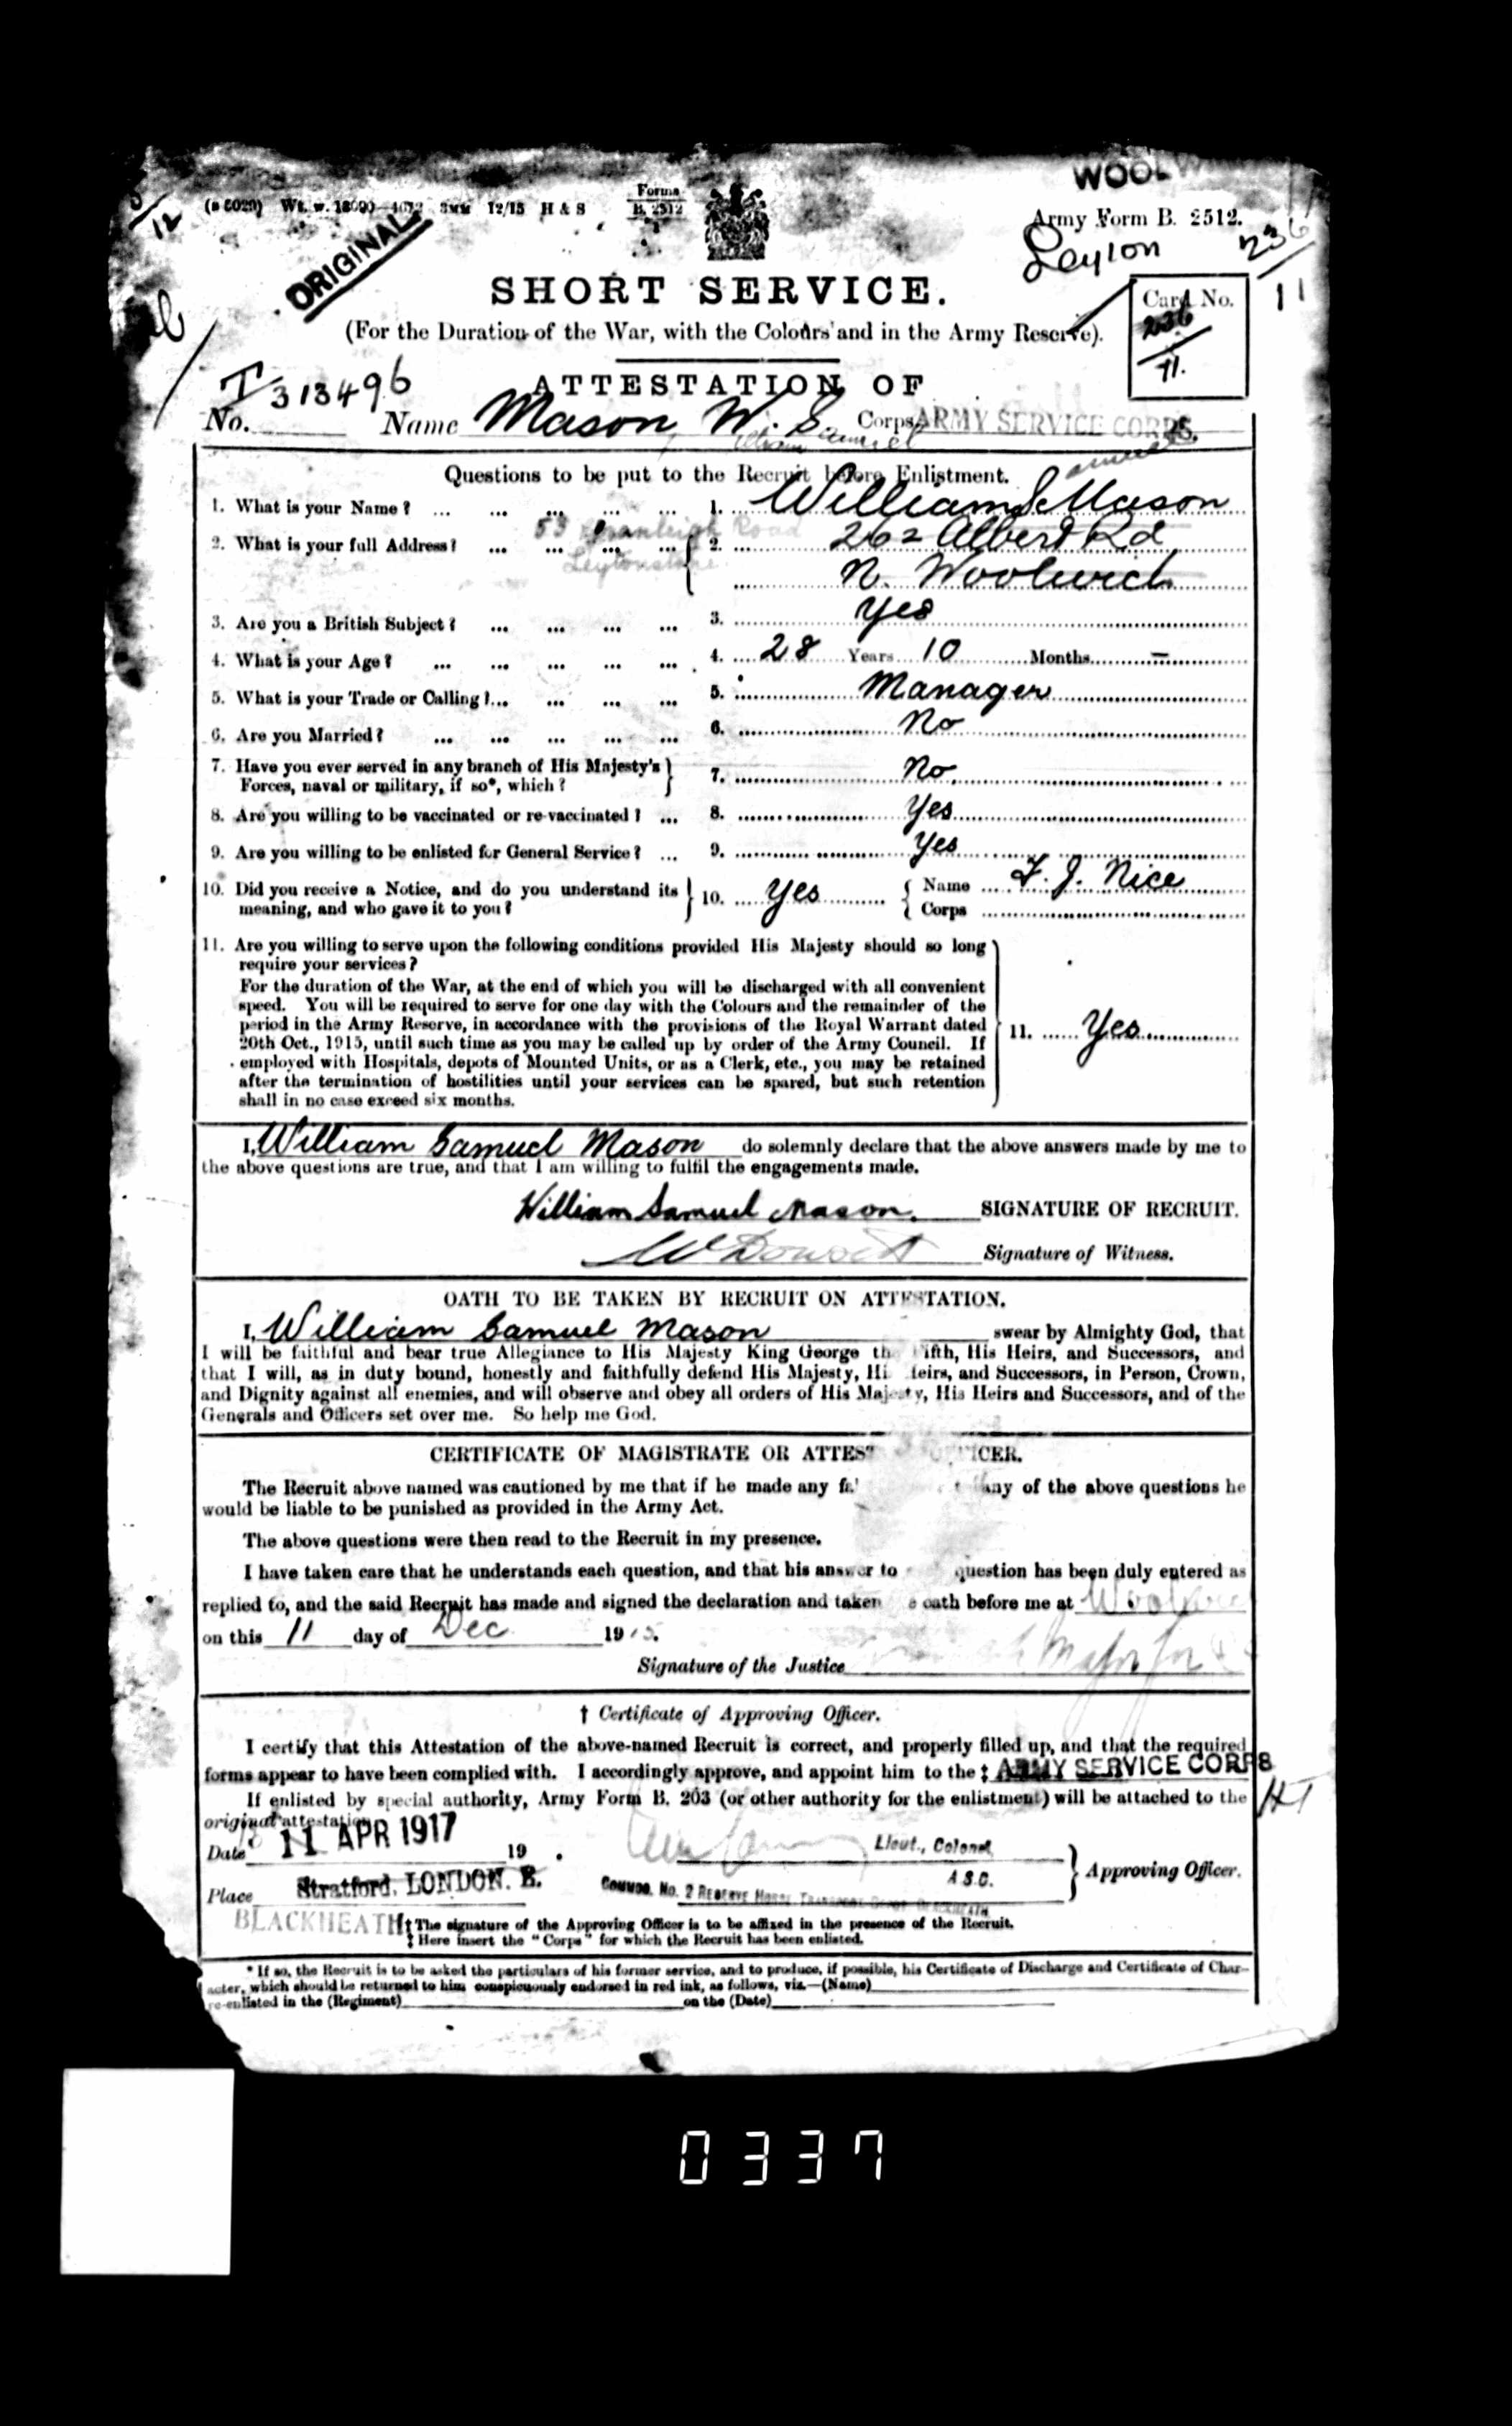 WOOL
12
Forms
B. 2512
12/15 H & S
Army Form B. 2512.
Leyton
236
11
ORIGINAL
SHORT SERVICE.
Card No.
236
11.
(For the Duration of the War, with the Colours and in the Army Reserve).
ATTESTATION OF
T/313496
No. Name Mason, W. S. Corps ARMY SERVICE CORPS.
William Samuel
Questions to be put to the Recruit before Enlistment.
amuel
1. What is your Name? ... ... ... ... ... 1. William S Mason
53 Road
2. What is your full Address? ... ... ... ... 2. 262 Albert Rd
Leytonstone
N. Woolwich
3. Are you a British Subject? ... ... ... ... 3. Yes
4. What is your Age? ... ... ... ... ... 4. 28 Years 10 Months —
5. What is your Trade or Calling?... ... ... ... 5. Manager
6. Are you Married? ... ... ... ... ... 6. No
7. Have you ever served in any branch of His Majesty's } 7. No
Forces, naval or military, if so*, which?
8. Are you willing to be vaccinated or re-vaccinated? ... 8. Yes
9. Are you willing to be enlisted for General Service? ... 9. Yes
10. Did you receive a Notice, and do you understand its } 10. Yes { Name F. J. Nice
meaning, and who gave it to you? Corps
11. Are you willing to serve upon the following conditions provided His Majesty should so long
require your services?
For the duration of the War, at the end of which you will be discharged with all convenient
speed. You will be required to serve for one day with the Colours and the remainder of the
period in the Army Reserve, in accordance with the provisions of the Royal Warrant dated
20th Oct., 1915, until such time as you may be called up by order of the Army Council. If } 11. Yes
employed with Hospitals, depots of Mounted Units, or as a Clerk, etc., you may be retained
after the termination of hostilities until your services can be spared, but such retention
shall in no case exceed six months.
I, William Samuel Mason do solemnly declare that the above answers made by me to
the above questions are true, and that I am willing to fulfil the engagements made.
William Samuel Mason. SIGNATURE OF RECRUIT.
W Dowsett Signature of Witness.
OATH TO BE TAKEN BY RECRUIT ON ATTESTATION.
I, William Samuel Mason swear by Almighty God, that
I will be faithful and bear true Allegiance to His Majesty King George the Fifth, His Heirs, and Successors, and
that I will, as in duty bound, honestly and faithfully defend His Majesty, Hi eirs, and Successors, in Person, Crown,
and Dignity against all enemies, and will observe and obey all orders of His Majesty, His Heirs and Successors, and of the
Generals and Officers set over me. So help me God.
CERTIFICATE OF MAGISTRATE OR ATTEST ICER.
The Recruit above named was cautioned by me that if he made any fa any of the above questions he
would be liable to be punished as provided in the Army Act.
The above questions were then read to the Recruit in my presence.
I have taken care that he understands each question, and that his answer to question has been duly entered as
replied to, and the said Recruit has made and signed the declaration and taken e oath before me at Woolwich
on this 11 day of Dec 1915.
Signature of the Justice Major for
† Certificate of Approving Officer.
I certify that this Attestation of the above-named Recruit is correct, and properly filled up, and that the required
forms appear to have been complied with. I accordingly approve, and appoint him to the ‡ ARMY SERVICE CORPS
If enlisted by special authority, Army Form B. 203 (or other authority for the enlistment) will be attached to the HT
original attestation.
Date 11 APR 1917 19 . Lieut., Colonel
A.S.C. } Approving Officer.
Place Stratford, LONDON. E. COMMDG. No. 2 RESERVE HORSE TRANSPORT DEPOT BLACKHEATH
BLACKHEATH † The signature of the Approving Officer is to be affixed in the presence of the Recruit.
‡ Here insert the "Corps" for which the Recruit has been enlisted.
* If so, the Recruit is to be asked the particulars of his former service, and to produce, if possible, his Certificate of Discharge and Certificate of Char-
acter, which should be returned to him conspicuously endorsed in red ink, as follows, viz.—(Name)
re-enlisted in the (Regiment) on the (Date)
0337